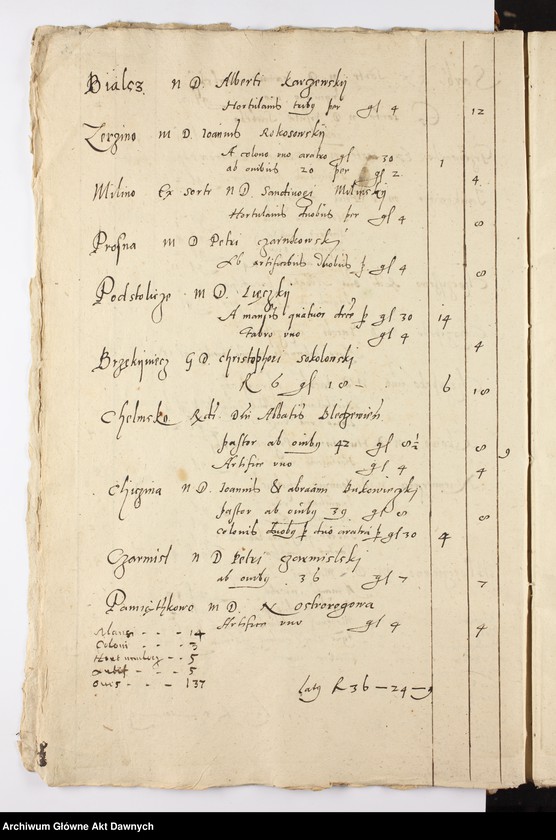 Bialcz N D Alberti Karzewskij
Hortulanis tribus per gl 4 12
Zerzino M D. Joannis Rokosowskij
A colono uno aratro gl 30 1
ab ovibus 20 per gl 2 4
Milino Ex sorte N D. Sandivogi Milinskij
Hortulanis duobus per gl 4 8
Prosna M D Petri Czarnkowskj
Ab artificibus duobus p gl 4 8
Podstolicze M D.
A mansis quatuor dece p gl 30 14
Fabro uno gl 4 4
Brzeskijwiecz G D. Christophori Sokolowskj
R 6 gl 18 — 6 18
Chelmsko Dni Abbatis Bledzewien
pastor ab ovibus 42 gl 8½ 8 9
Artifice uno gl 4 4
N D. Joannis & Abraami Bukowieczkj
pastor ab ovibus 39 gl 8 8
colonis duobus p duo aratra p gl 30 4
Czarmisl N D Petri Czarmislskj
ab ovibus 36 gl 7 7
Pamiętkowo M D. N Ostroroguna
Artifice uno gl 4 4
Mansi - - - 14
Coloni - - 3
- - 5
Artif - - - 5
Oves - - - 137
Latus R 36 — 24 — 9
Archiwum Główne Akt Dawnych